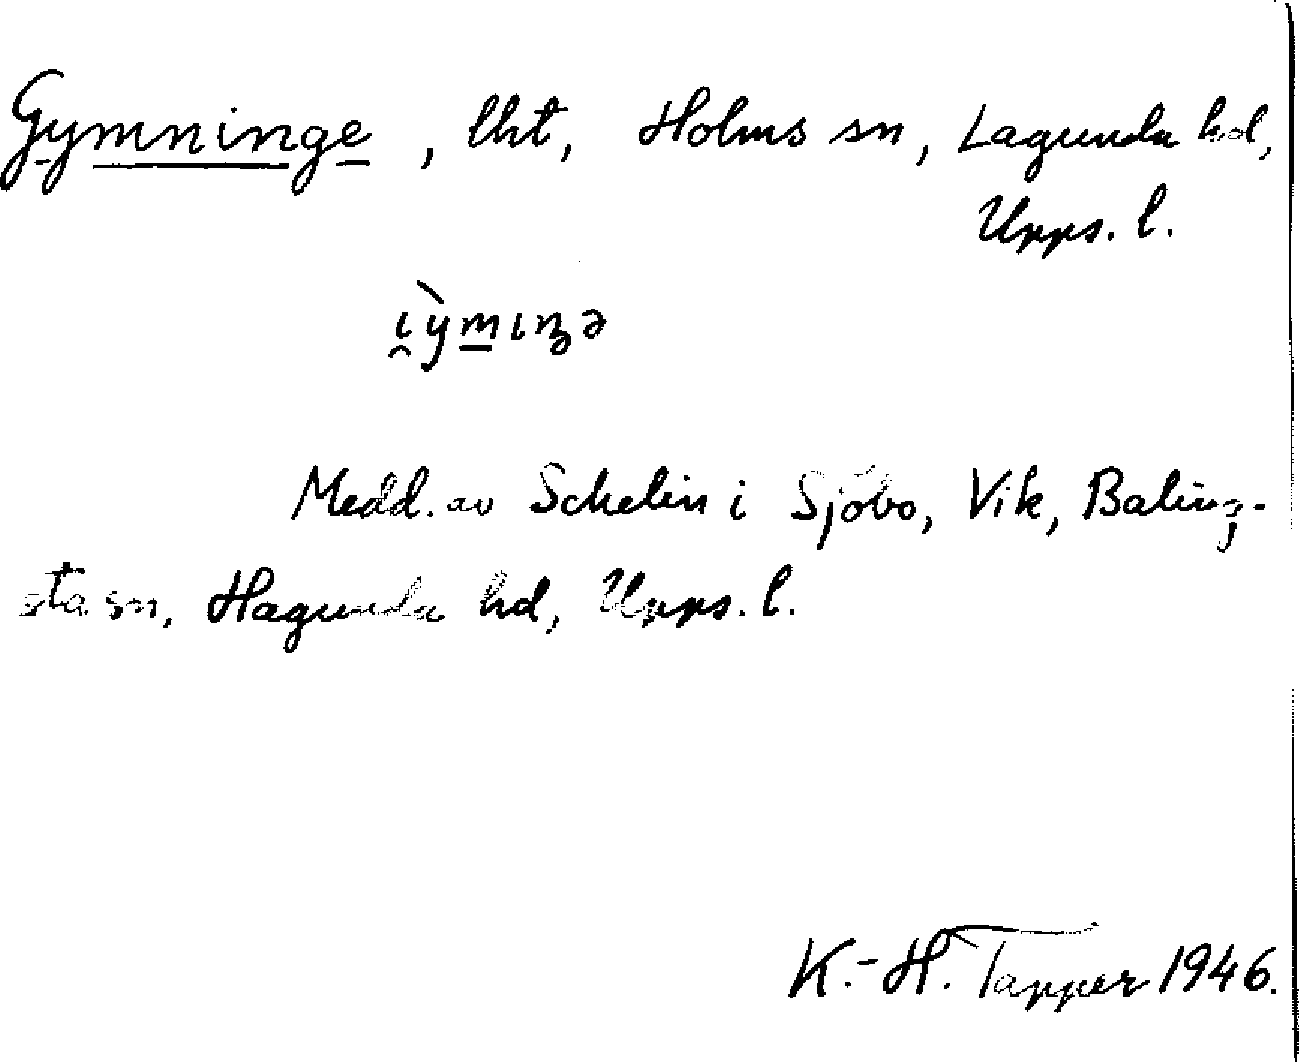 Gymninge, lht, Holms sn, Lagunda hd,
Upps. l.
i̯ỳmıŋə
Medd. av Schelin i Sjöbo, Vik, Baling-
sta sn, Hagunda hd, Upps. l.
K.-H. Tapper 1946.